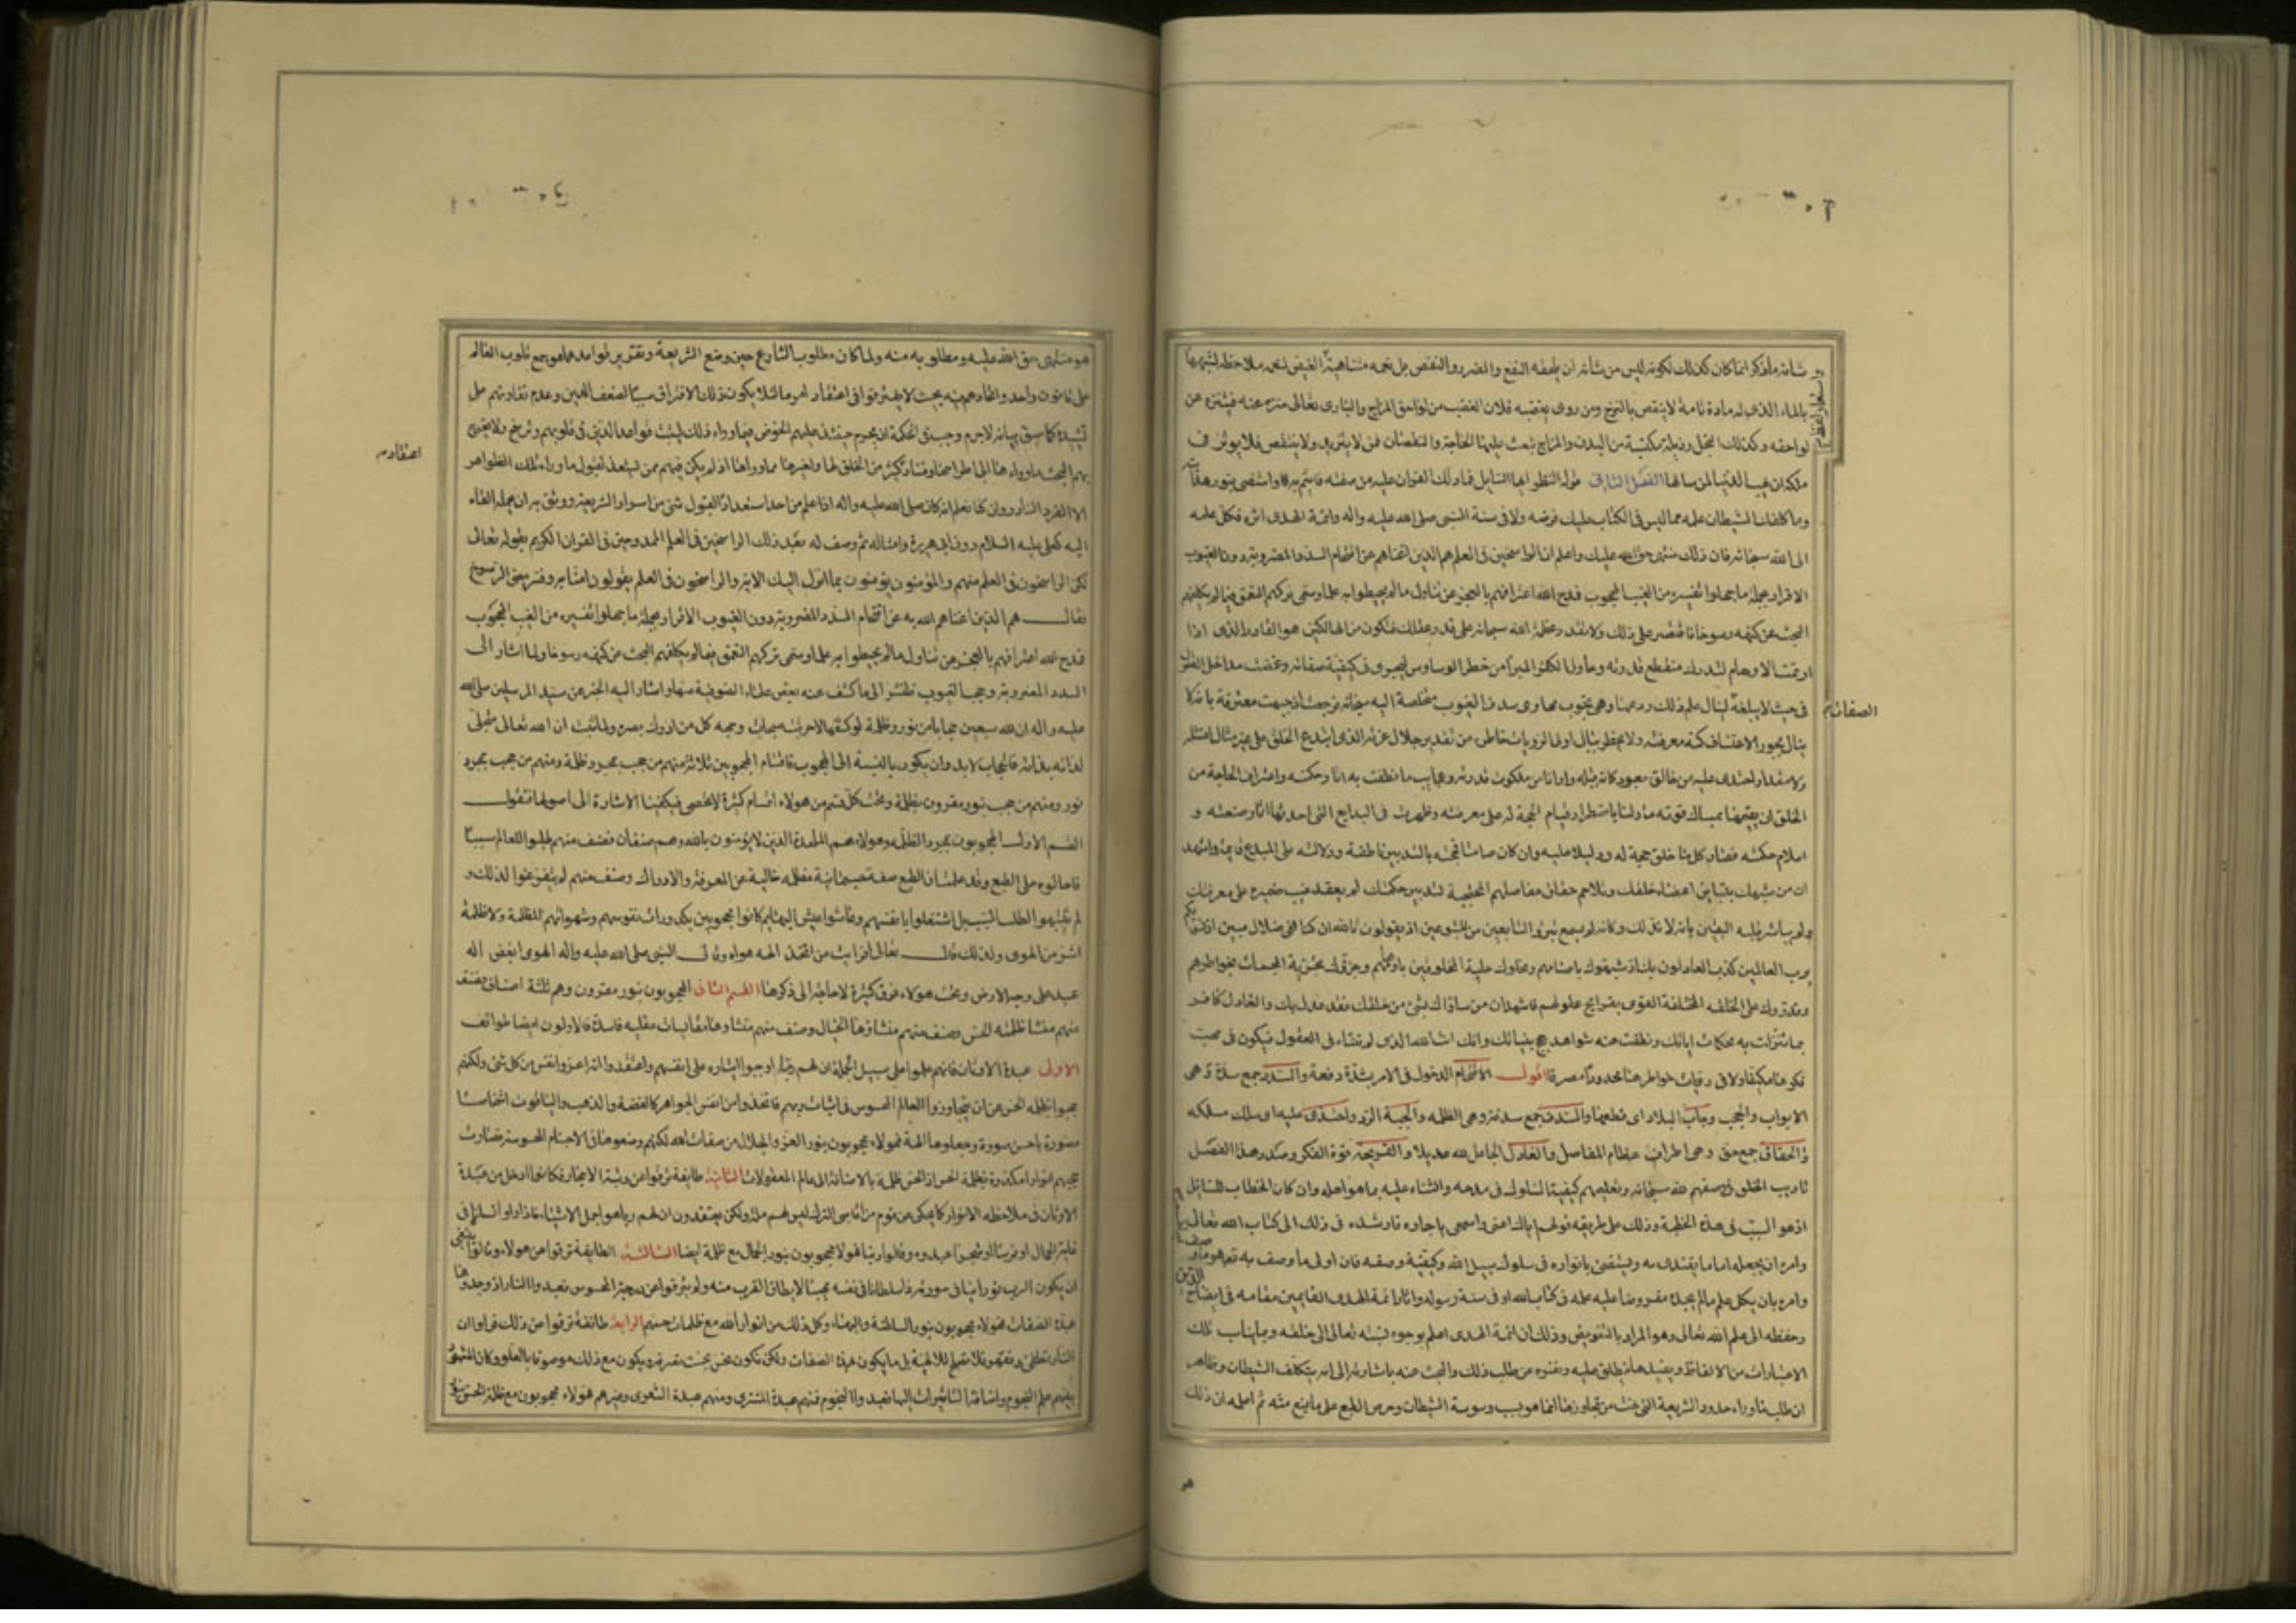 شأنه ما ذكر انما كان كذلك لكونه ليس من شأنه ان يلحقه النفع والضرر والنقص بل نعمه
بالماء الذى له مادة تامة لا ينقص بالنزح ومن روى يغضبه فلان الغضب من لواحق المزاج والبارى تعالى منزه عنه فيتنزه عن
لواحقه وكذلك البخل رذيلة مكتسبة من البدن والمزاج تبعث عليها الحاجة والنقصان فمن لا يتزيد ولا ينتقص فلا يوثر فى
ملكه ان يهب الدنيا لمن سألها الفصل الثانى قوله فانظر ايها السايل فما دلك القران عليه من صفته فايتم به واستضئ بنور هدايته
وما كلفك الشيطان علمه مما ليس فى الكتاب عليك فرضه ولا فى سنة النبى صلى الله عليه واله وائمة الهدى اثره فكل علمه
الى الله سبحانه فان ذلك منتهى حق الله عليك واعلم ان الراسخين فى العلم هم الذين اغناهم عن اقتحام السدد المضروبة دون الغيوب
الاقرار بجملة ما جهلوا تفسيره من الغيب المحجوب فمدح الله اعترافهم بالعجز عن تناول ما لم يحيطوا به علما وسمى تركهم التعمق فيما لم يكلفهم
البحث عن كنهه رسوخا فاقتصر على ذلك ولا تقدر عظمة الله سبحانه على قدر عقلك فتكون من الهالكين هو القادر الذى اذا
ارتمت الاوهام لتدرك منقطع قدرته وحاول الفكر المبرأ من خطر الوساوس ليجرى فى كيفية صفاته وغمضت مداخل العقول
فى حيث لا يبلغه لينال علم ذلك ردعها وهى تجوب مهاوى سدف الغيوب متخلصة اليه سبحانه فرجعت اذ جبهت معترفة بانه لا
الصفات
ينال بجور الاعتساف كنه معرفته ولا يخطر ببال اولى الرويات خاطرة من تقدير جلال عزته الذى ابتدع الخلق على غير مثال امتثله
ولا مقدار احتذى عليه من خالق معبود كان قبله وارانا من ملكوت قدرته وعجايب ما نطقت به اثار حكمته واعتراف الحاجة من
الخلق ان يقيمها بمساك قوته ما دلنا باضطرار قيام الحجة له على معرفته وظهرت فى البدايع التى احدثها اثار صنعته و
اعلام حكمته فصار كل ما خلق حجة له ودليلا عليه وان كان صامتا فحجته بالتدبير ناطقة ودلالته على المبدع قايمة واشهد
ان من شبهك بتباين اعضاء خلقك وتلاحم حقاق مفاصلهم المحتجبة لتدبير حكمتك لم يعقد غيب ضميره على معرفتك
ولم يباشر قلبه اليقين بانه لا ند لك وكانه لم يسمع تبرؤ التابعين من المتبوعين اذ يقولون تالله ان كنا لفى ضلال مبين اذ نسويكم
برب العالمين كذب العادلون بك اذ شبهوك باصنامهم ونحلوك حلية المخلوقين باوهامهم وجزؤك تجزية المجسمات بخواطرهم
وقدروك على الخلقة المختلفة القوى بقرايح عقولهم فاشهد ان من ساواك بشئ من خلقك فقد عدل بك والعادل كافر
بما تنزلت به محكمات اياتك ونطقت عنه شواهد حجج بيناتك وانك انت الله الذى لم تتناه فى العقول فتكون فى مهب
فكرها مكيفا ولا فى رويات خواطرها محدودا مصرفا اقول الاقتحام الدخول فى الامر بشدة دفعة والسدد جمع سدة وهى
الابواب والحجب وجاب البلاد اى قطعها والسدف جمع سدفة وهى الظلمة والجبه الرد واحتذى عليه اى سلك مسلكه
والحقاق جمع حق وهى اطراف عظام المفاصل والعادل الجاعل لله عديلا والقريحة قوة الفكر وصدر هذا الفصل
تاديب الخلق فى وصفهم لله سبحانه وتعليمهم كيفية السلوك فى مدحه والثناء عليه بما هو اهله وان كان الخطاب للسائل
اذ هو السبب فى هذه الخطبة وذلك على طريقة قولهم اياك اعنى واسمعى يا جاره فارشده فى ذلك الى كتاب الله تعالى
وامره ان يجعله اماما يقتدى به ويستضئ بانواره فى سلوك سبيل الله وكيفية وصفه فان اولى ما وصف به تعالى هو ما وصف به
وامره بان يكل علم ما لم يجده مفروضا عليه علمه فى كتاب الله او فى سنة رسوله واثار ائمة الهدى القايمين مقامه فى ايضاح الدين
وحفظه الى علم الله تعالى وهو المراد بالتفويض وذلك ان ائمة الهدى اعلم بوجوه نسبته تعالى الى خلقه وبما يناسب تلك
الاعتبارات من الالفاظ ويفيدها فيطلق عليه ونفره عن طلب ذلك والبحث عنه باشارته الى انه بتكلف الشيطان وظاهر
ان طلب ما وراء حدود الشريعة التى منعت من تجاوزها انما هو بسبب وسوسة الشيطان وحرص الطبع على ما يمنع منه ثم اعلمه ان ذلك
هو
هو منتهى حق الله عليه ومطلوبه منه ولما كان مطلوب الشارع حين وضع الشريعة وتقرير قواعدها هو جمع قلوب العالم
على قانون واحد واتحادهم فيه بحيث لا يفترقوا فى اعتقاد امر ما لئلا يكون ذلك الافتراق سببا لضعف الدين وعدم تعاونهم على
تشييده كما سبق بيانه لا جرم وجب فى الحكمة ان يحرم حينئذ عليهم الخوض فيما وراء ذلك لتثبت قواعد الدين فى قلوبهم وترسخ ولا يخرج
اعتقاده
بهم البحث عما وراءها الى اطراحها وفساد كثير من الخلق لها ولغيرها مما وراءها اذ لم يكن فيهم من يستعد لقبول ما وراء تلك الظواهر
الا الفرد النادر وان كنا نعلم انه كان صلى الله عليه واله اذا علم من احد استعدادا لقبول شئ من اسرار الشريعة ووثق به ان يحمله القاه
اليه كعلى عليه السلام دون ابى هريرة وامثاله ثم وصف له بعد ذلك الراسخين فى العلم الممدوحين فى القران الكريم بقوله تعالى
لكن الراسخون فى العلم منهم والمؤمنون يؤمنون بما انزل اليك الاية والراسخون فى العلم يقولون امنا به وفسر معنى الرسوخ
فقال هم الذين اغناهم الله به عن اقتحام السدد المضروبة دون الغيوب الاقرار بجملة ما جهلوا تفسيره من الغيب المحجوب
فمدح الله اعترافهم بالعجز عن تناول ما لم يحيطوا به علما وسمى تركهم التعمق فيما لم يكلفهم البحث عن كنهه رسوخا ولما اشار الى
السدد المضروبة وحجب الغيوب فلنشر الى ما كشف عنه بعض علماء الصوفية منها واشار اليه الخبر عن سيد المرسلين صلى الله
عليه واله ان لله سبعين حجابا من نور وظلمة لو كشفها لاحرقت سبحات وجهه كل من ادرك بصره ولما ثبت ان الله تعالى متجلى
لذاته بذاته فالحجاب لا بد وان يكون بالنسبة الى المحجوب فاقسام المحجوبين ثلاثة منهم من حجب بمجرد ظلمة ومنهم من حجب بمجرد
نور ومنهم من حجب بنور مقرون بظلمة وتحت كل قسم من هولاء اقسام كثيرة لا تحصى فيكفينا الاشارة الى اصولها فنقول
القسم الاول المحجوبون بمجرد الظلمة وهولاء هم الملحدة الذين لا يؤمنون بالله وهم صنفان فصنف منهم طلبوا للعالم سببا
فاحالوه على الطبع وقد علمت ان الطبع صفة جسمانية مظلمة خالية عن المعرفة والادراك وصنف منهم لم يتفرغوا لذلك و
لم يتنبهوا لطلب السبب بل اشتغلوا بانفسهم وعاشوا عيش البهايم فكانوا محجوبين بكدورات نفوسهم وشهواتهم المظلمة ولا ظلمة
اشد من الهوى ولذلك قال تعالى افرايت من اتخذ الهه هواه وقال النبى صلى الله عليه واله الهوى ابغض اله
عبد على وجه الارض وتحت هولاء فرق كثيرة لا حاجة الى ذكرها القسم الثانى المحجوبون بنور مقرون وهم ثلثة اصناف فصنف
منهم منشأ ظلمته الحس وصنف منهم منشاؤها الخيال وصنف منهم منشاؤها مقايسات عقلية فاسدة فالاولون ايضا طوائف
الاولى عبدة الاوثان فانهم علموا على سبيل الجملة ان لهم ربا واوجبوا ايثاره على انفسهم واعتقدوا انه اعز وانفس من كل شئ ولكنهم
حجبوا بظلمة الحس عن ان يتجاوزوا العالم المحسوس فى اثبات ربهم فاتخذوا من انفس الجواهر كالفضة والذهب والياقوت اشخاصا
مصورة باحسن صورة وجعلوها الهة فهولاء محجوبون بنور العز والجلال من صفات الله لكنهم وضعوها فى الاجسام المحسوسة فصارت
حجبهم انوارا مكدرة بظلمة الحس اذ الحس ظلمة بالاضافة الى عالم المعقولات الثانية طايفة ترقوا عن رتبة الاحجار فكانوا ادخل من عبدة
الاوثان فى ملاحظة الانوار كما يحكى عن قوم من اقاصى الترك ليس لهم ملة ولكن يعتقدون ان لهم ربا هو اجمل الاشياء فاذا راوا انسانا فى
غاية الجمال او فرسا او شجرا عبدوه وقالوا ربنا فهولاء محجوبون بنور الجمال مع ظلمة ايضا الثالثة الطايفة ترقوا عن هولاء وقالوا ينبغى
ان يكون الرب نورانيا فى صورته ذا سلطان فى نفسه مهيبا لا يطاق القرب منه ولم يترقوا عن درجة المحسوس فعبدوا النار اذ وجدوها
بهذه الصفات فهولاء محجوبون بنور السلطنة والبهاء وكل ذلك من انوار الله مع ظلمات حسهم الرابعة طائفة ترقوا عن ذلك فراوا ان
النار تطفى وتقهر فلا تصلح للالهية بل ما يكون بهذه الصفات ولكن نكون نحن تحت تصرفه ويكون مع ذلك موصوفا بالعلو وكان المشهور
بينهم علم النجوم واضافة التاثيرات اليها فعبدوا النجوم فمنهم عبدة المشترى ومنهم عبدة الشعرى وغيرهم فهولاء محجوبون مع ظلمة الحس بنور